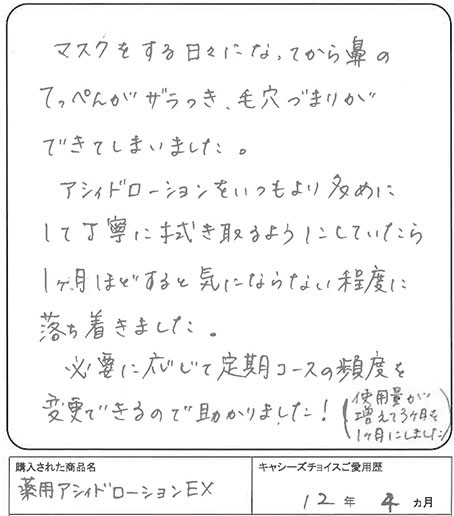 マスクをする日々になってから鼻の
てっぺんがザラつき、毛穴づまりが
できてしまいました。
アシィドローションをいつもより多めに
して丁寧に拭き取るようにしていたら
1ヶ月ほどすると気にならない程度に
落ち着きました。
必要に応じて定期コースの頻度を
変更できるので助かりました!
(使用量が
増えて3ヶ月を
1ヶ月にしました)
購入された商品名
薬用アシィドローションEX
キャシーズチョイスご愛用歴
12年 4ヵ月